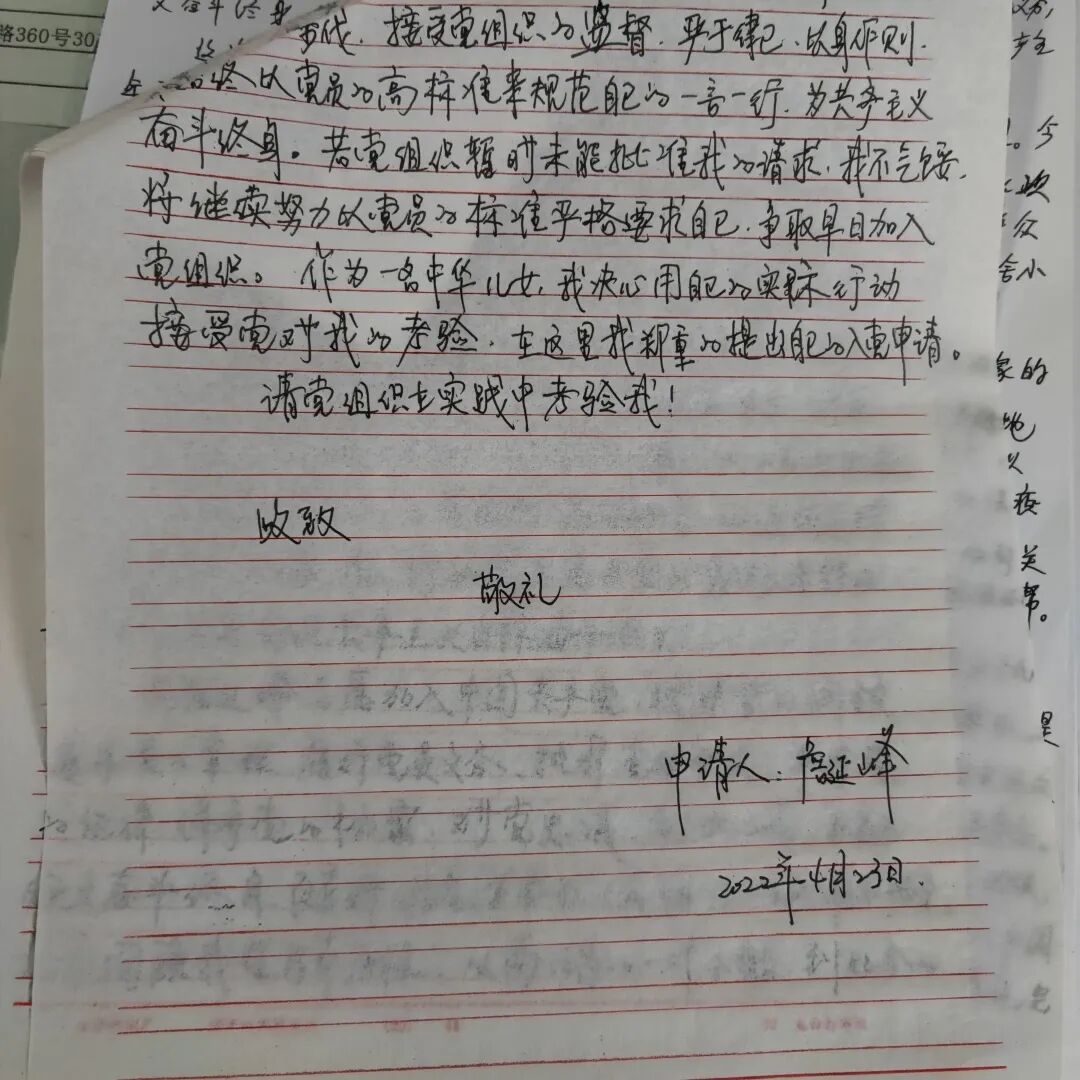 路360号30
接受党组织的监督,严于律己、以身作则,
终以党员的高标准来规范自己的一言一行,为共产主义
奋斗终身。若党组织暂时未能批准我的请求,我不气馁,
将继续努力以党员的标准严格要求自己,争取早日加入
党组织。作为一名中华儿女,我决心用自己的实际行动
接受党对我的考验,在这里我郑重的提出自己的入党申请。
请党组织在实践中考验我!
此致
敬礼
申请人:延峰
2022年4月23日.
今
次
小
家的
地
义
疫
关
帮。
是